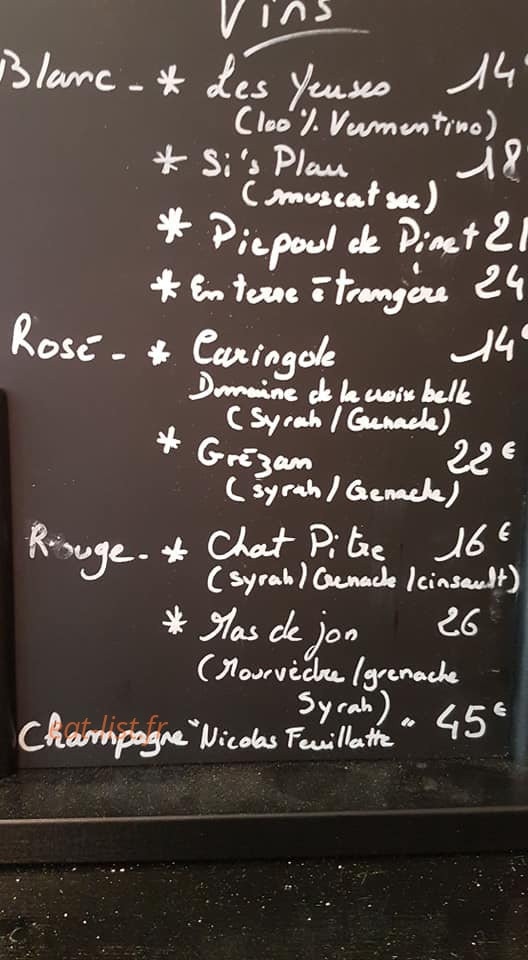 Vins
Blanc - * Les Yeuses 14€
(100 % Vermentino)
* Si's Plau 18
(muscat sec)
* Picpoul de Pinet 21
* En terre étrangère 24
Rosé - * Caringole 14€
Domaine de la croix belle
(Syrah / Grenache)
* Grézan 22€
(syrah / Grenache)
Rouge - * Chat Pitre 16€
(syrah / Grenache / cinsault)
* Mas de jon 26
(Mourvèdre / grenache
Syrah)
Champagne "Nicolas Feuillatte" 45€
eat-list.fr